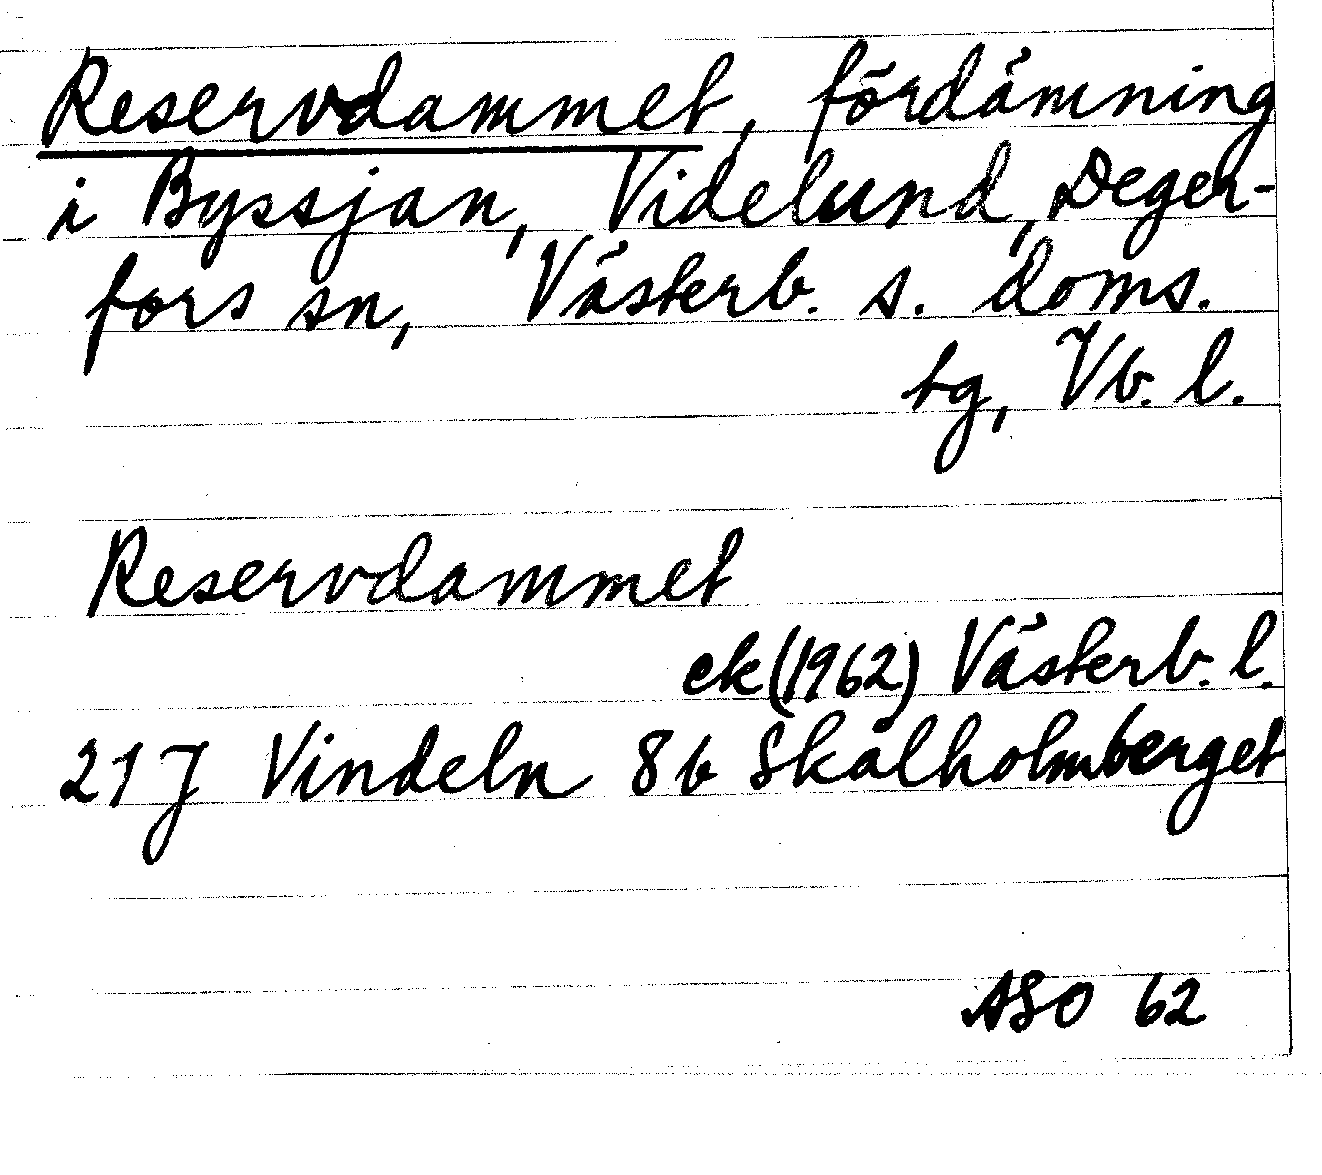 Reservdammet, fördämning
i Byssjan, Videlund, Deger-
fors sn, Västerb. s. doms.
tg, Vb. l.
Reservdammet
ek (1962) Västerb. l.
21 J Vindeln 8b Skålholmberget
ASO 62